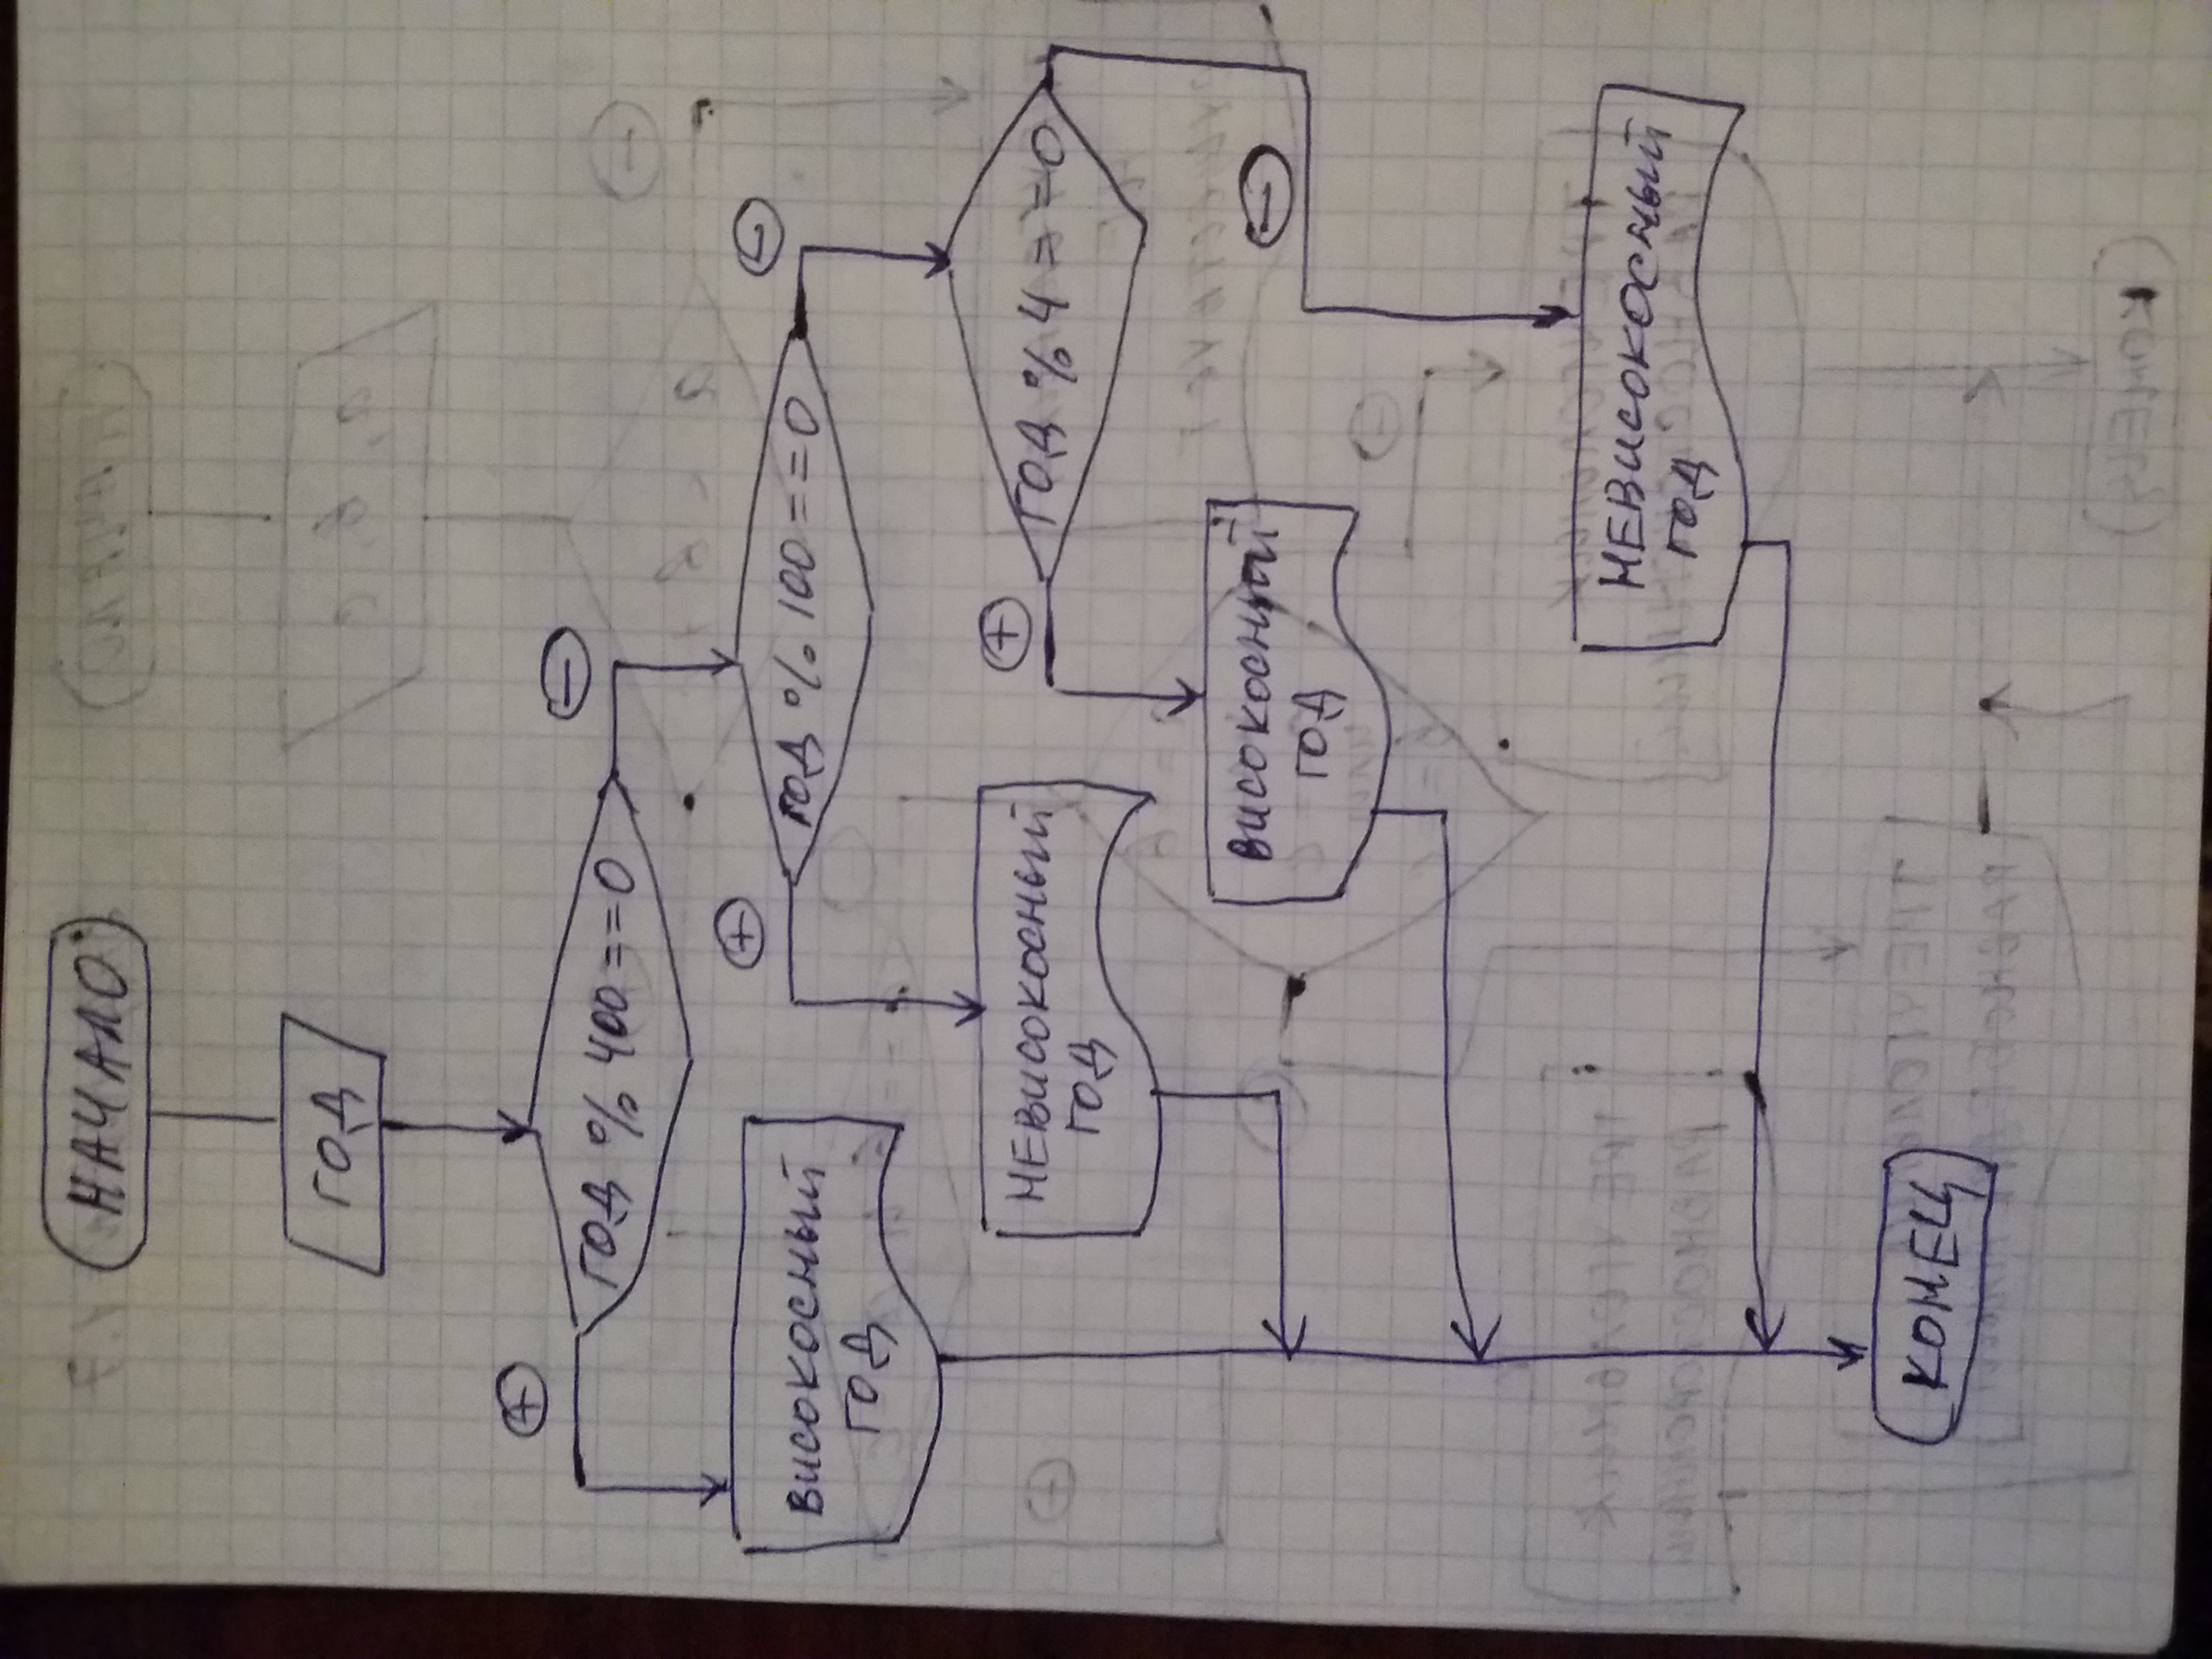 НАЧАЛО
ГОД
+
ГОД % 400 == 0
−
ВИСОКОСНЫЙ
ГОД
+
ГОД % 100 == 0
−
НЕВИСОКОСНЫЙ
ГОД
+
ГОД % 4 == 0
−
ВИСОКОСНЫЙ
ГОД
НЕВИСОКОСНЫЙ
ГОД
КОНЕЦ